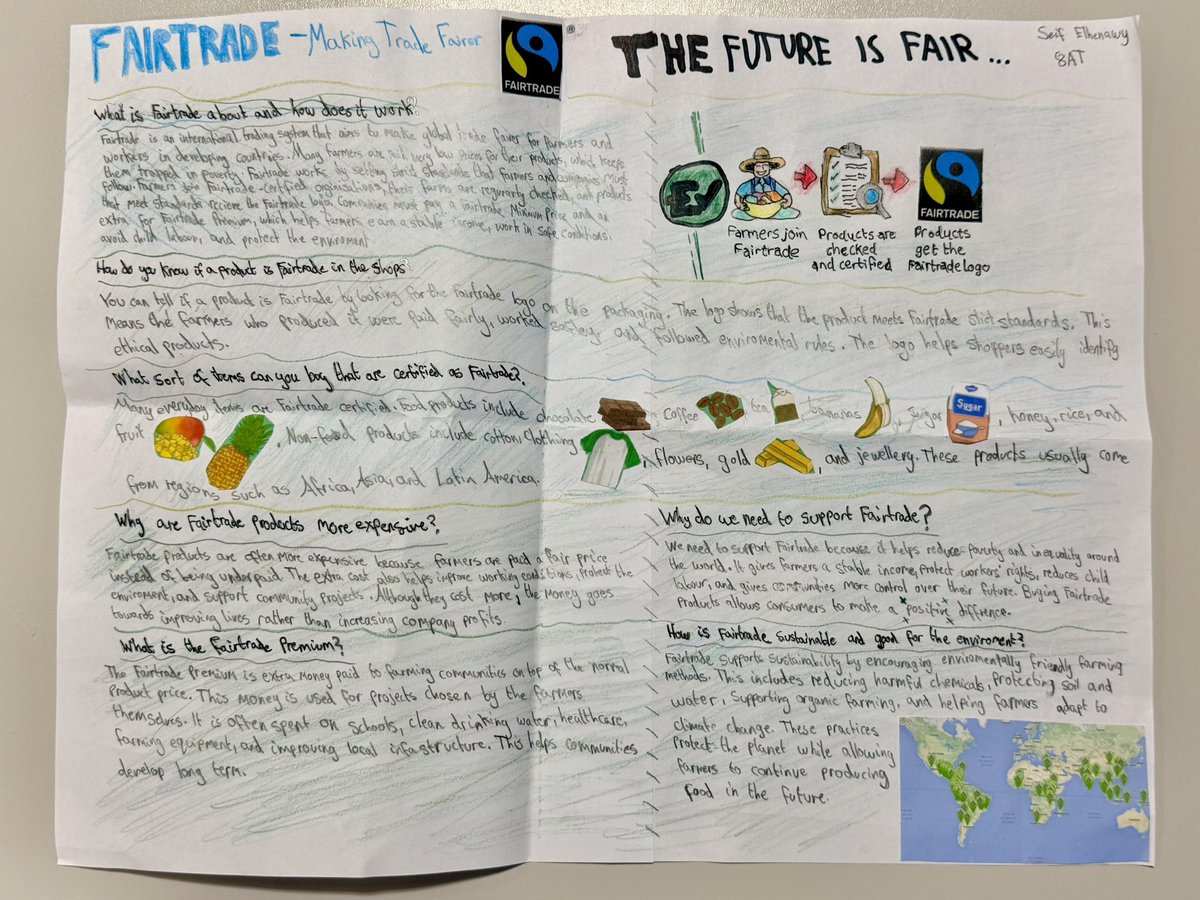 FAIRTRADE - Making Trade Fairer
FAIRTRADE
THE FUTURE IS FAIR...
Seif Elhenawy
8AT
What is Fairtrade about and how does it work?
Fairtrade is an international trading system that aims to make global trade fairer for farmers and
workers in developing countries. Many farmers are paid very low prices for their products, which keeps
them trapped in poverty. Fairtrade works by setting strict standards that farmers and companies must
follow. Farmers join Fairtrade-certified orginisations, their farms are regurarly checked, and products
that meet standards recieve the Fairtrade logo. Companies must pay a Fairtrade Minimum Price and an
extra for Fairtrade Premium, which helps farmers earn a stable income, work in safe conditions,
avoid child labour, and protect the enviroment
Farmers join
Fairtrade
Products are
checked
and certified
FAIRTRADE
Products
get the
Fairtrade Logo
How do you know if a product is Fairtrade in the shops?
You can tell if a product is Fairtrade by looking for the Fairtrade logo on the packaging. The logo shows that the product meets Fairtrade stict standards. This
means the farmers who produced it were paid fairly, worked safley, and followed enviromental rules. The logo helps shoppers easily identify
ethical products.
What sort of items can you buy that are certified as Fairtrade?
Many everyday items are Fairtrade certified. Food products include chocolate, coffee, tea, bananas, sugar, honey, rice, and
Sugar
fruit. Non-food products include cotton clothing, flowers, gold, and jewellery. These products usually come
from regions such as Africa, Asia, and Latin America.
Why are Fairtrade products more expensive?
Fairtrade products are often more expensive because farmers are paid a fair price
instead of being underpaid. The extra cost also helps improve working conditions, protect the
enviroment, and support community projects. Although they cost more, the money goes
towards improving lives rather than increasing company profits.
Whats is the Fairtrade Premium?
The Fairtrade Premium is extra money paid to farming communities on top of the normal
product price. This money is used for projects chosen by the farmers
themselves. It is often spent on schools, clean drinking water, healthcare,
farming equipment, and improving local infastructure. This helps communities
develop long term.
Why do we need to support Fairtrade?
We need to support Fairtrade because it helps reduce poverty and inequality around
the world. It gives farmers a stable income, protect workers' rights, reduces child
labour, and gives communties more control over their future. Buying Fairtrade
Products allows consumers to make a positive diffence.
How is Fairtrade sustainable and good for the enviroment?
Fairtrade supports sustainability by encouraging enviromentally friendly farming
methods. This includes reducing harmful chemicals, protecting soil and
water, supporting organic farming, and helping farmers adapt to
climate change. These practices
protect the planet while allowing
farmers to continue producing
food in the future.